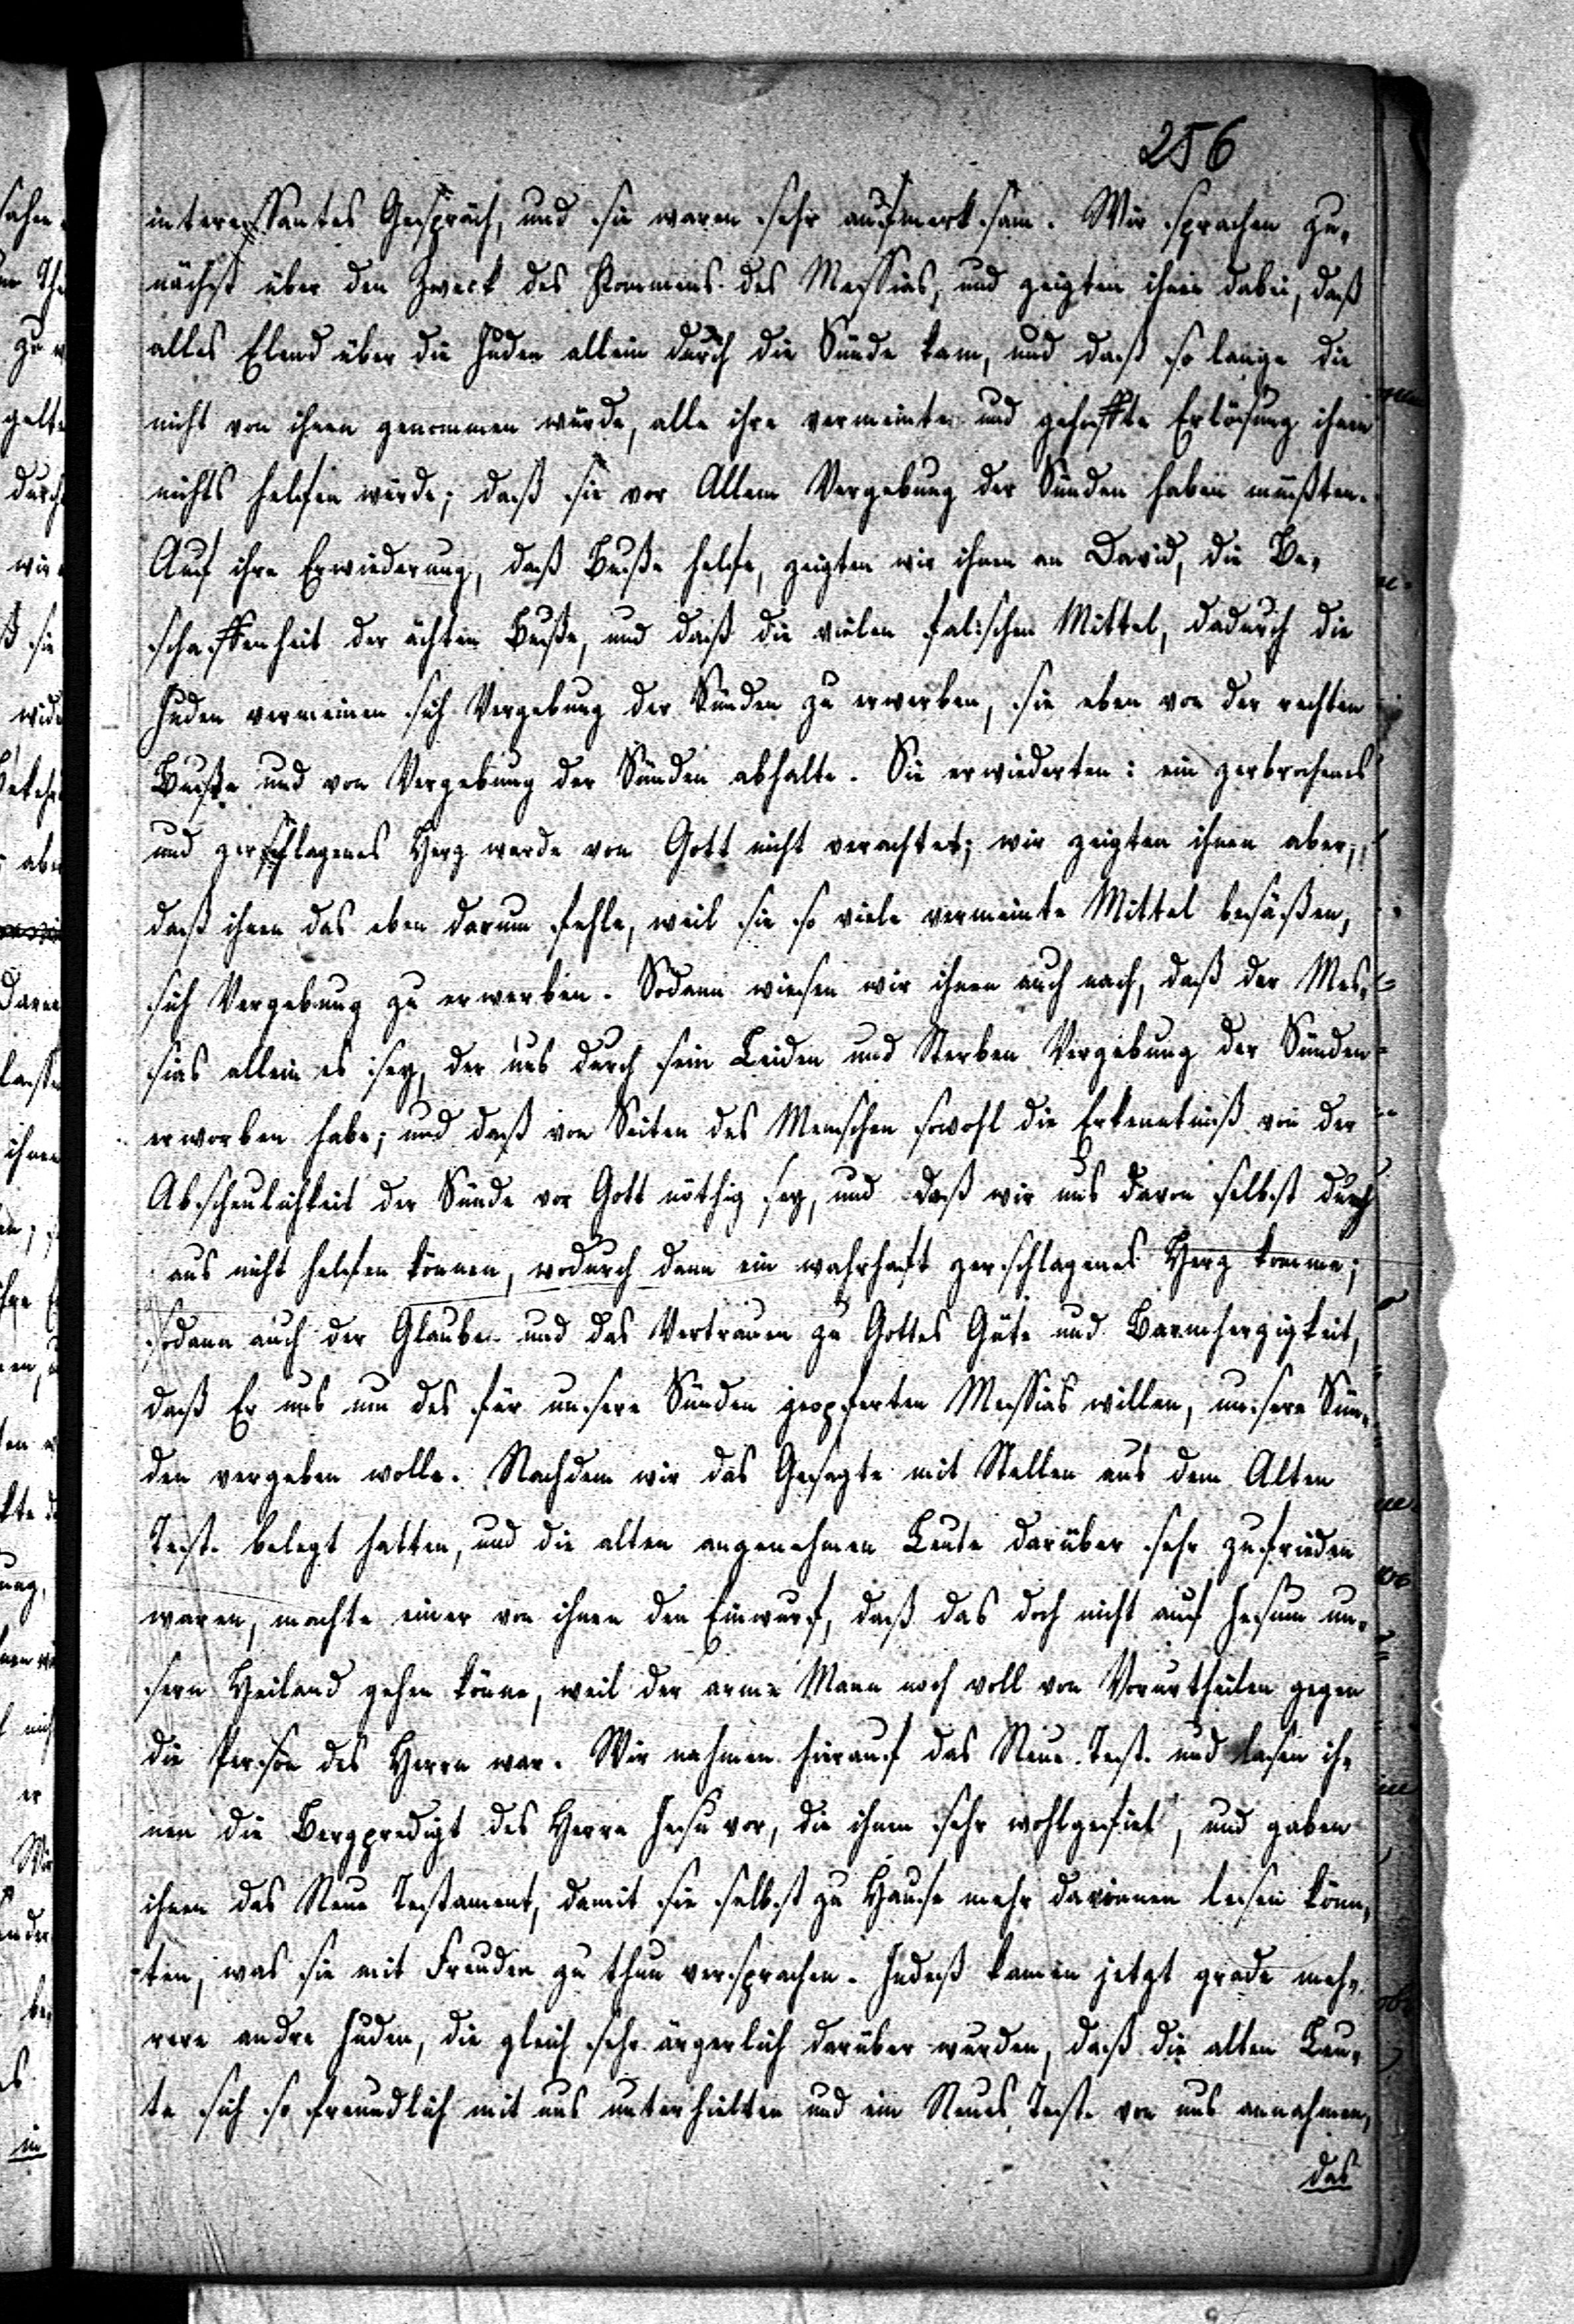 256
interessantes Gespräch, und sie waren sehr aufmerksam. Wir sprachen zu,
nächst über den Zweck des Kommens des Messias, und zeigten ihnen dabei, daß
alles Elend über die Juden allein durch die Sünde kam, und daß so lange die
nicht von ihnen genommen würde, alle ihre vermeinte und gehoffte Erlösung ihnen
nichts helfen würde; daß sie vor Allem Vergebung der Sünden haben müßten.
Auf ihre Erwiederung, daß Buße helfe, zeigten wir ihnen an David, die Be,
schaffenheit der ächten Buße, und daß die vielen falschen Mittel, dadurch die
Juden vermeinen sich Vergebung der Sünden zu erwerben, sie eben von der rechten
Buße und von Vergebung der Sünden abhalte. Sie erwiederten: ein zerbrochenes
und zerschlagenes Herz werde von Gott nicht verachtet; wir zeigten ihnen aber,
daß ihnen das eben darum fehle, weil sie so viele vermeinte Mittel besäßen,
sich Vergebung zu erwerben. Sodann wiesen wir ihnen auch nach, daß der Mes,
sias allein es sey, der uns durch sein Leiden und Sterben Vergebung der Sünden
erworben habe; und daß von Seiten des Menschen sowohl die Erkenntniß von der
Abscheulichkeit der Sünde vor Gott nöthig sey, und daß wir uns davon selbst durch
aus nicht helfen können, wodurch dann ein wahrhaft zerschlagenes Herz komme;
sodann auch der Glaube und das Vertrauen zu Gottes Güte und Barmherzigkeit,
daß Er uns um des für unsere Sünden geopferten Messias willen, unsere Sün,
den vergeben wolle. Nachdem wir das Gesagte mit Stellen aus dem Alten
Test. belegt hatten, und die alten angenehmen Leute darüber sehr zufrieden
waren, machte einer von ihnen den Einwurf, daß das doch nicht auf Jesum un,
sern Heiland gehen könne, weil der arme Mann noch voll von Vorurtheilen gegen
die Person des Herrn war. Wir nahmen hierauf das Neue Test. und lasen ih,
nen die Bergpredigt des Herrn Jesu vor, die ihnen sehr wohlgefiel, und gaben
ihnen das Neue Testament, damit sie selbst zu Hause mehr darinnen lesen könn,
ten, was sie mit Freuden zu thun versprachen. Indeß kamen jetzt grade meh,
rere andre Juden, die gleich sehr ärgerlich darüber wurden, daß die alten Leu,
te sich so freundlich mit uns unterhielten und ein Neues Test. von uns annahmen,
das